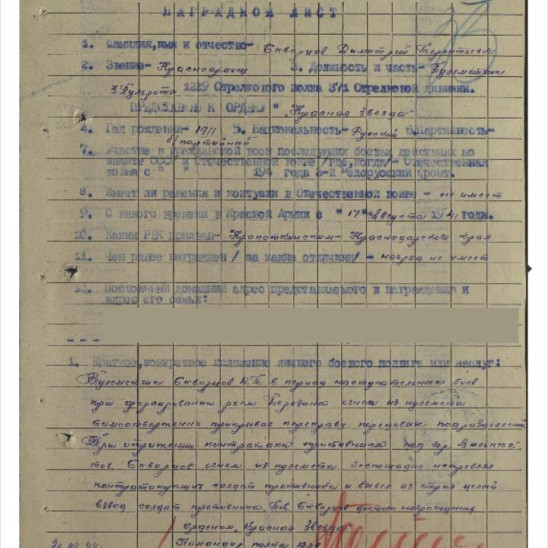 НАГРАДНОЙ ЛИСТ
1. Фамилия, имя и отчество- Скворцов Димитрий
2. Звание- Красноармеец 3. Должность и часть- Пулеметчик
3 Пульрота 1229 Стрелкового полка 371 Стрелковой дивизии.
ПРЕДСТАВЛЕН К ОРДЕНУ "Красная Звезда"
4. Год рождения- 1911 5. Национальность- Русский 6. Партийность-
б/партийный
7. Участие в гражданской войне последующих боевых действиях по
защите СССР и Отечественной войне /где, когда/- Отечественная
война с " " 194 года 3-й Белорусский фронт.
8. Имеет ли ранения и контузии в Отечественной войне - не имеет
9. С какого времени в Красной Армии с "17" августа 1941 года.
10. Каким РВК призван- Кропоткинским- Краснодарского края
11. Чем ранее награжден /за какие отличия/ - наград не имеет
12. Постоянный домашний адрес представляемого к награждению и
адрес его семьи:
1. Краткое, конкретное изложение личного боевого подвига или заслуг:
Пулеметчик Скворцов Д.Т. в период наступательных боев
при форсировании реки Березина огнем из пулемета
самоотверженно прикрывал переправу передовых подразделений
При отражении контратаки противника под гор. Вильнюс
тов. Скворцов огнем из пулемета беспощадно истреблял
контратакующих солдат противника и вывел из строя целый
взвод солдат противника. Тов. Скворцов достоин награждения
орденом, Красная Звезда"
Командир полка 1229